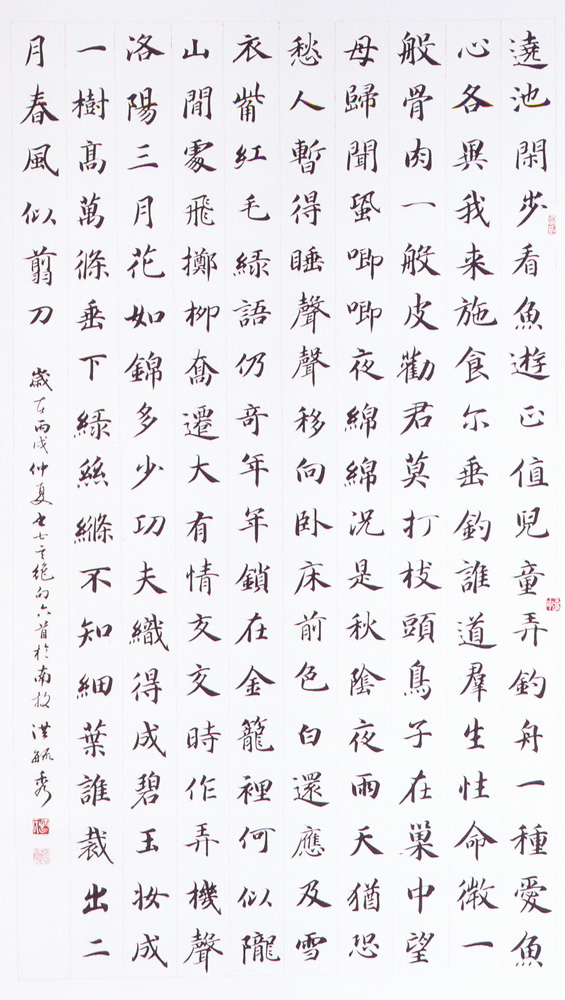 遶池閑步看魚遊正值兒童弄釣舟一種愛魚
心各異我来施食尔垂釣誰道羣生性命微一
般骨肉一般皮勸君莫打枝頭鳥子在巢中望
母歸聞蛩唧唧夜綿綿況是秋陰夜雨天猶恐
愁人暫得睡聲聲移向卧床前色白還應及雪
衣觜紅毛緑語仍奇年年鎖在金籠裡何似隴
山閒處飛擲柳喬遷大有情交交時作弄機聲
洛陽三月花如錦多少功夫織得成碧玉妝成
一樹髙萬條垂下緑絲縧不知細葉誰裁出二
月春風似剪刀
歲在丙戌仲夏書七言絕句六首於南投 洪毓秀